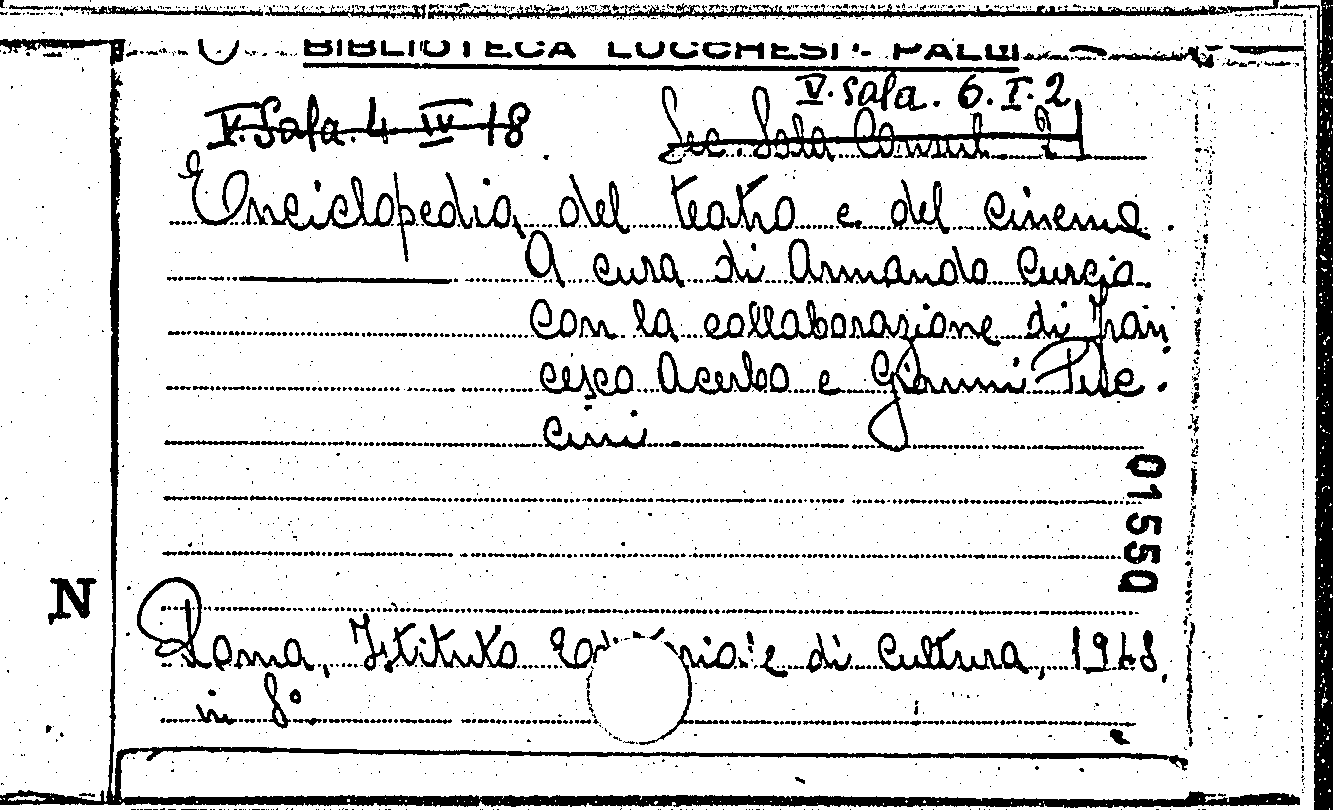 BIBLIOTECA LUCCHESI - PALLI
V. Sala. 6. I. 2
V. Sala. 4 IV 18
Sec. Sala Consult. 21
Enciclopedia del teatro e del cinema.
A cura di Armando Curcio
con la collaborazione di Fran
cesco Acerbo e Gianni Puc
cini
01550
N
Roma, Istituto Editoriale di Cultura, 1948.
in 8°.